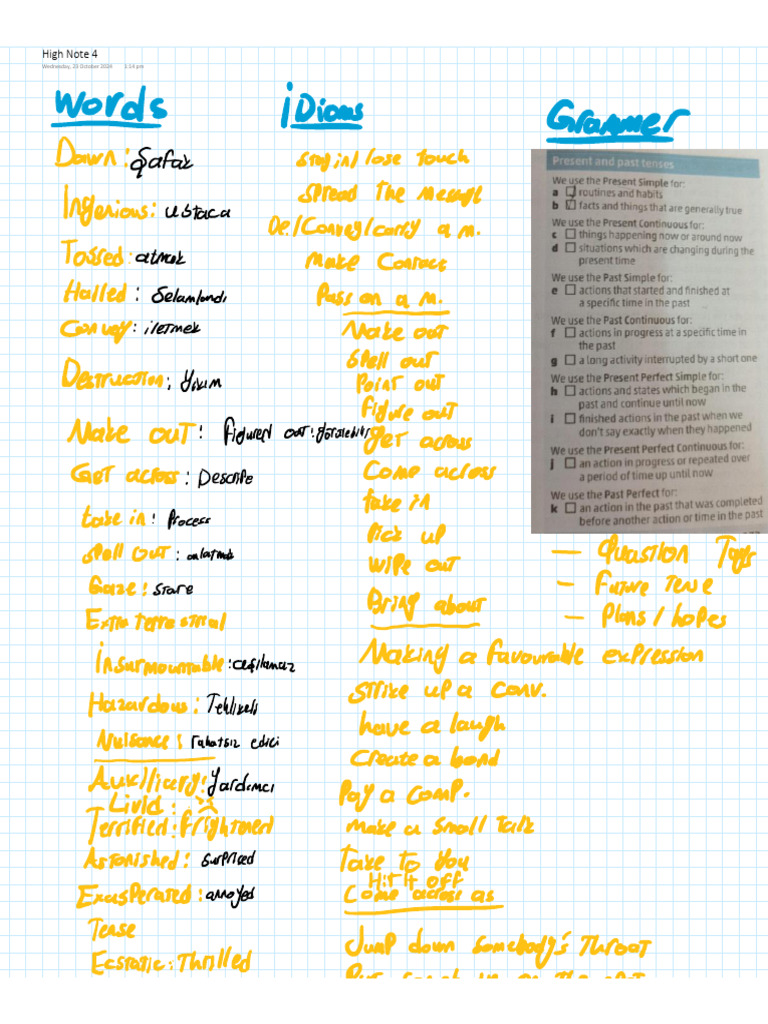 High Note 4
Wednesday, 23 October 2024 1:14 pm
Words
Dawn: Şafak
Ingenious: ustaca
Tossed: atmak
Hailed: Selamlandı
Convey: iletmek
Destruction: Yıkım
Make out: figured out:
Get across: Describe
take in: Process
Spell out: anlatmak
Gaze: stare
Extra terrestrial
insurmountable: aşılamaz
Hazardous: Tehlikeli
Nuisance: rahatsız edici
Auxiliary: Yardımcı
Livid:
Terrified: frightened
Astonished: surprised
Exasperated: annoyed
Tense
Ecstatic: Thrilled
iDioms
stay in/lose touch
Spread the message
De./Convey/carry a m.
make Contact
Pass on a m.
Make out
Spell out
Point out
figure out
get across
Come across
take in
Pick up
wipe out
Bring about
Making a favourable expression
Strike up a conv.
have a laugh
Create a bond
Pay a comp.
make a small talk
Take to you
Hit it off
Come across as
Jump down somebody's throat
Grammer
Present and past tenses
We use the Present Simple for:
a routines and habits
b facts and things that are generally true
We use the Present Continuous for:
c things happening now or around now
d situations which are changing during the
present time
We use the Past Simple for:
e actions that started and finished at
a specific time in the past
We use the Past Continuous for:
f actions in progress at a specific time in
the past
g a long activity interrupted by a short one
We use the Present Perfect Simple for:
h actions and states which began in the
past and continue until now
i finished actions in the past when we
don't say exactly when they happened
We use the Present Perfect Continuous for:
j an action in progress or repeated over
a period of time up until now
We use the Past Perfect for:
k an action in the past that was completed
before another action or time in the past
— Question Tags
— Future Tense
— Plans / hopes